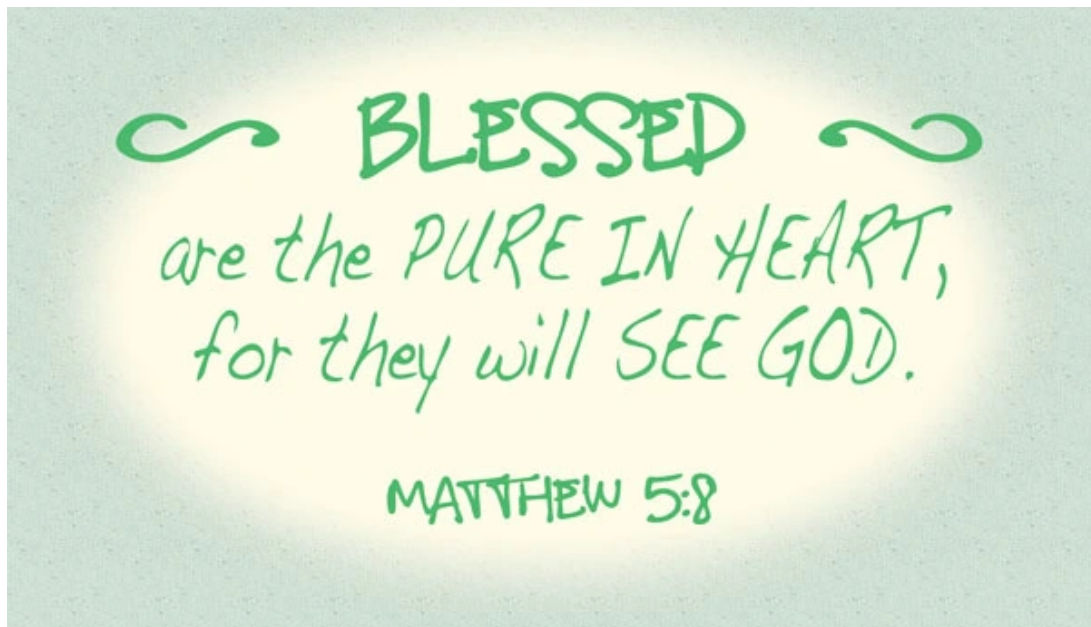 BLESSED
are the PURE IN HEART,
for they will SEE GOD.
MATTHEW 5:8